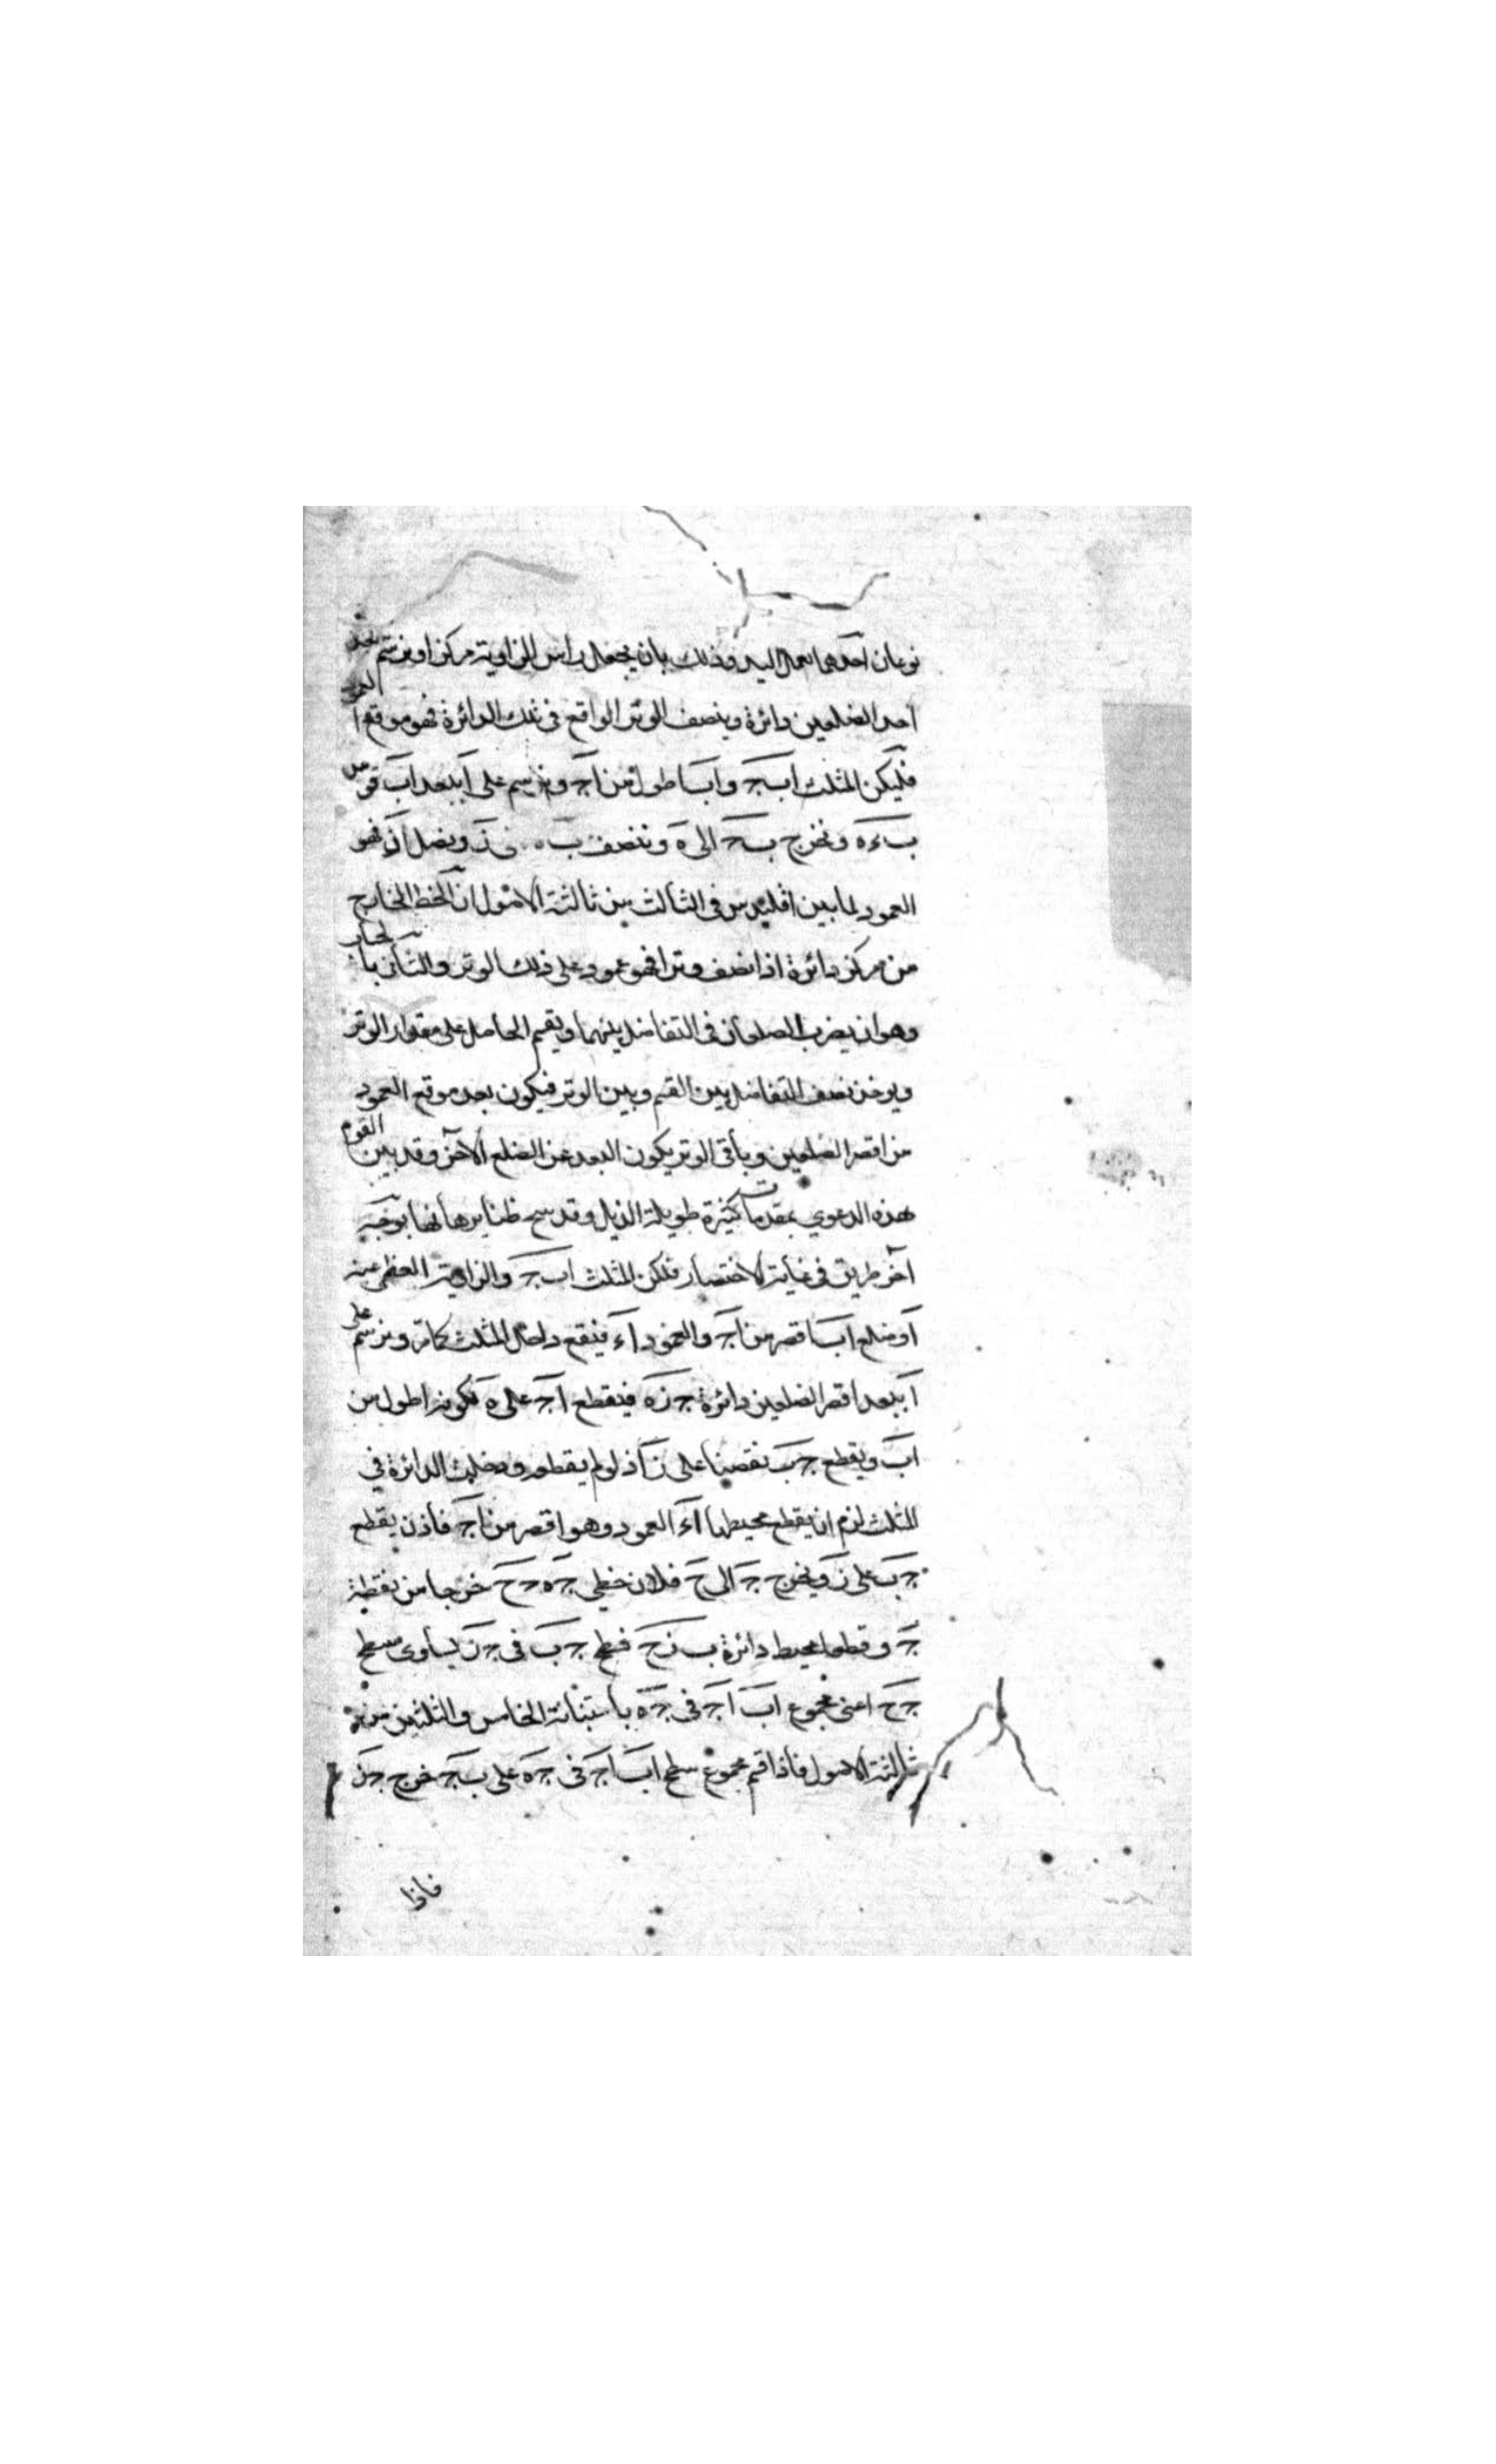 نوعان احدهما بعمل اليد وذلك بان يجعل راس الزاوية مركزا ونرسم ببعد
احد الضلعين دائرة وينصف الوتر الواقع فى تلك الدائرة فهو موقع العمود
فليكن المثلث اب‍ج واب اطول من اج ونرسم على ا ببعد اب قوس
ب‍ءه ونخرج ب‍ج الى ه وننصف ب‍ه فى ز ونصل از فهو
العمود لما بين اقليدس فى الثالث من ثالثة الاصول ان الخط الخارج
من مركز دائرة اذا نصف وترا فهو عمود على ذلك الوتر والثانى بالحساب
وهو ان يضرب الضلعان فى التفاضل بينهما ويقسم الحاصل على مقدار الوتر
ويوخذ نصف التفاضل بين القسم وبين الوتر فيكون بعد موقع العمود
من اقصر الضلعين وباقى الوتر يكون البعد عن الضلع الآخر وقد بين القوم
هذه الدعوي بمقدمات كثيرة طويلة الذيل وقد سنح لنا برهانها بوجه
آخر طريق فى غاية الاختصار فلكن المثلث اب‍ج والزاوية العظمى منه
ا وضلع اب اقصر من اج والعمود اء فيقع داخل المثلث كما مر ونرسم على
ا ببعد اقصر الضلعين دائرة ج‍زه فيقطع اج على ه لكونه اطول من
اب ويقطع ج‍ب نقصنا على ز اذ لو لم يقطعه ودخلت الدائرة في
المثلث لزم ان يقطع محيطها اء العمود وهو اقصر من اج فاذن يقطع
ج‍ب على ز ويخرج ج‍ا الى ح فلان خطى ج‍ه ج‍ح خرجا من نقطة
ج وقطعا محيط دائرة ب‍زح فسطح ج‍ب فى ج‍ز يساوى مسطح
ج‍ح اعنى مجموع اب اج فى ج‍ه باستبانة الخامس والثلثين من
ثالثة الاصول فاذا قسم مجموع سطح اب اج فى ج‍ه على ب‍ج خرج ج‍ز
فاذا